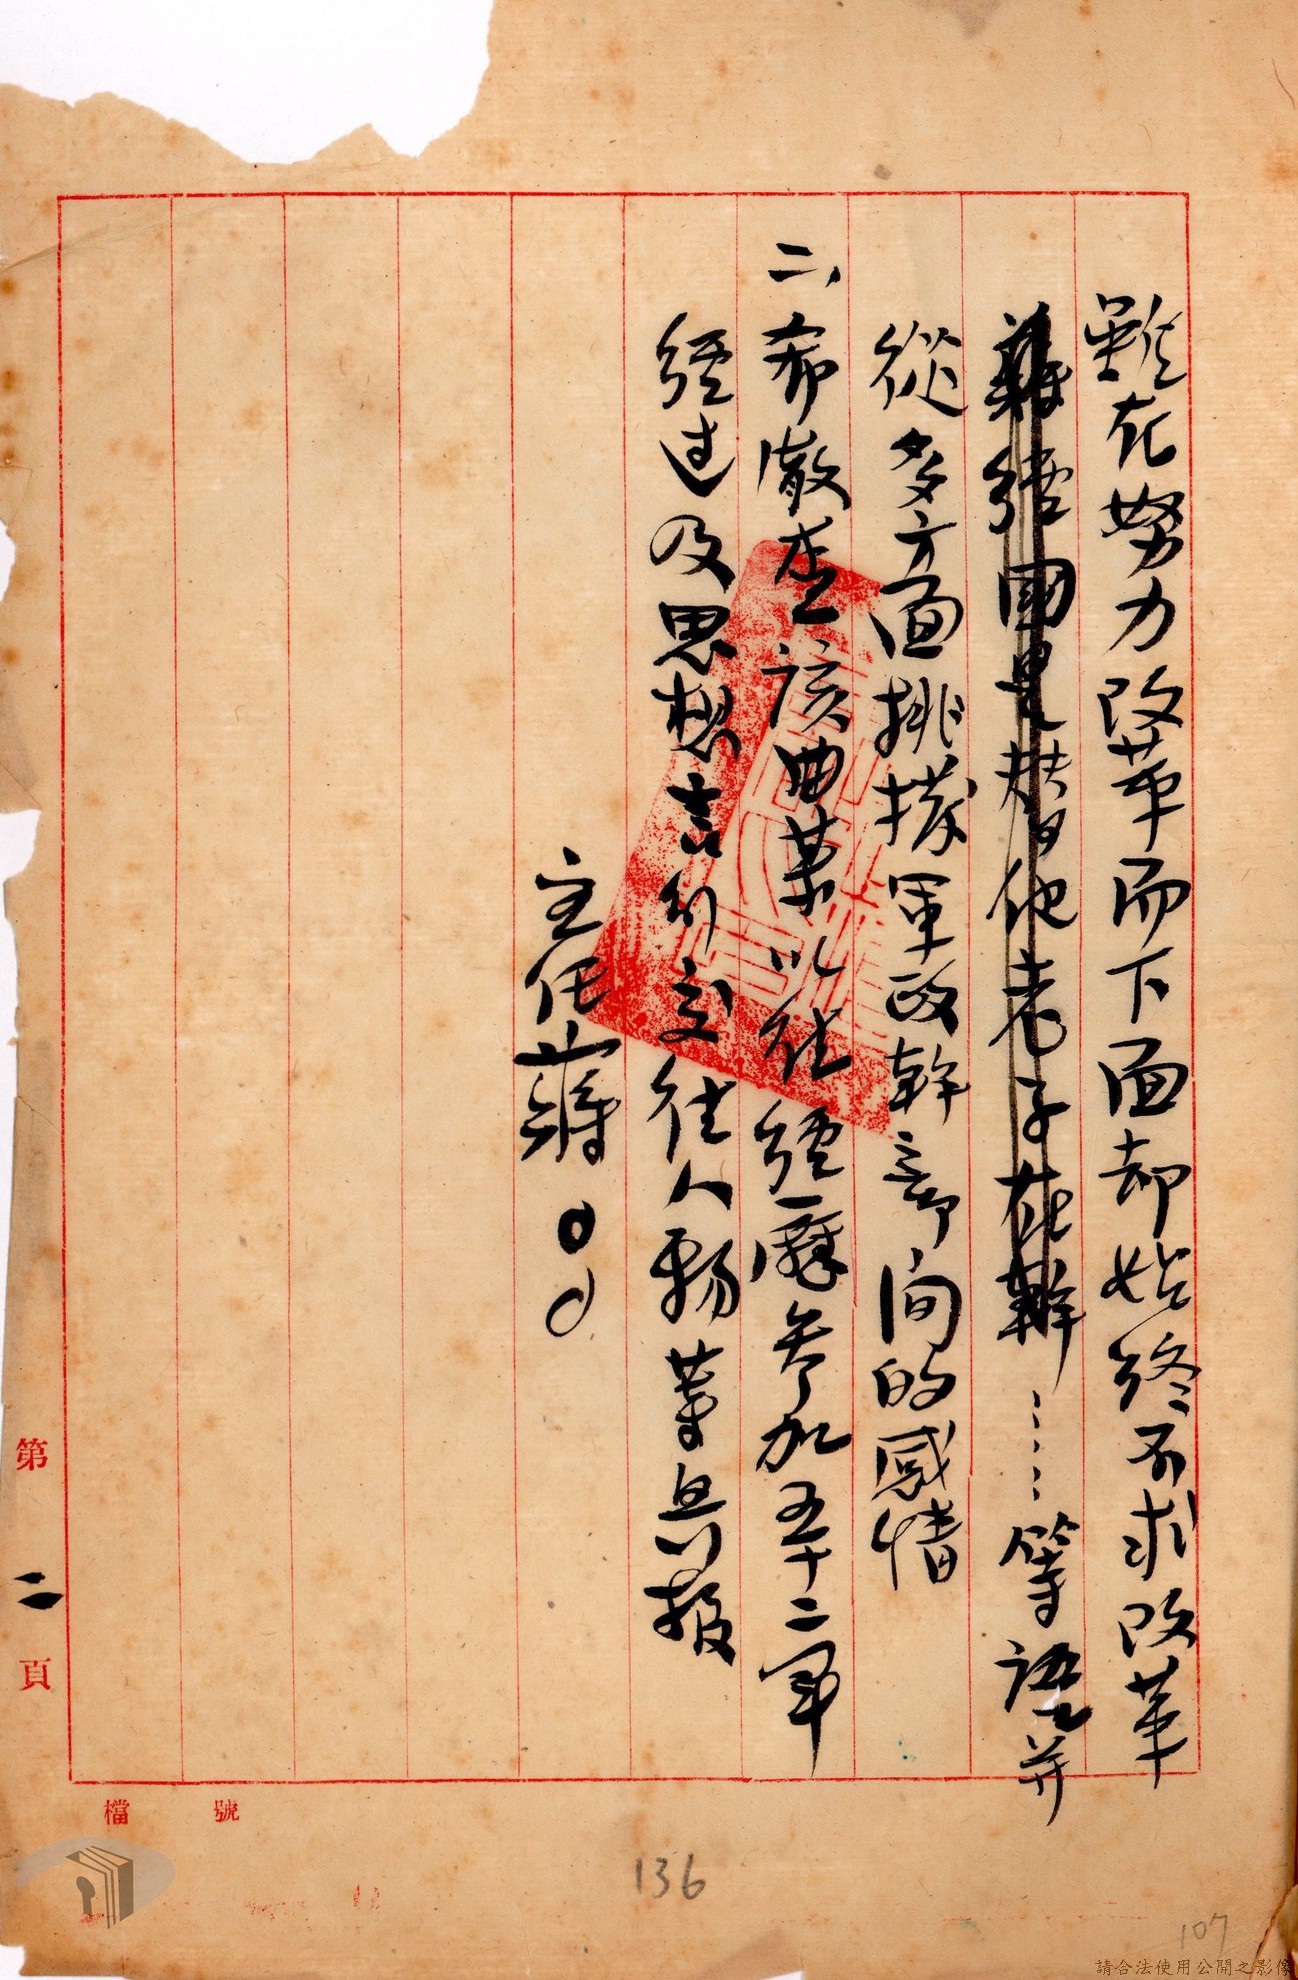 雖在努力改革而下面却始終不求改革
蔣經國是替他老子在幹……等語並
從多方面挑撥軍政幹部间的感情
二、希澈查該曲某以往經歷參加五十二軍
經过及思想言行交往人物等具报
主任蔣〇〇
第二頁
檔號
136
107
請合法使用公開之影像